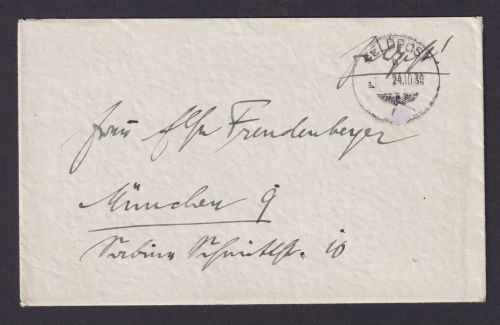 Feldpost!
FELDPOST
24.10.39
Frau Elsa Freudenberger
München 9
Sabine Schmittstr. 10